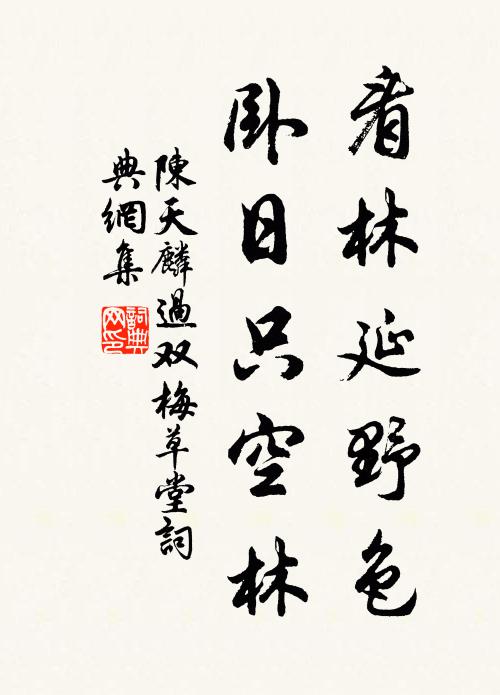 看林延野色
卧日只空林
陳天麟過双梅草堂詞
典網集
詞典
网印